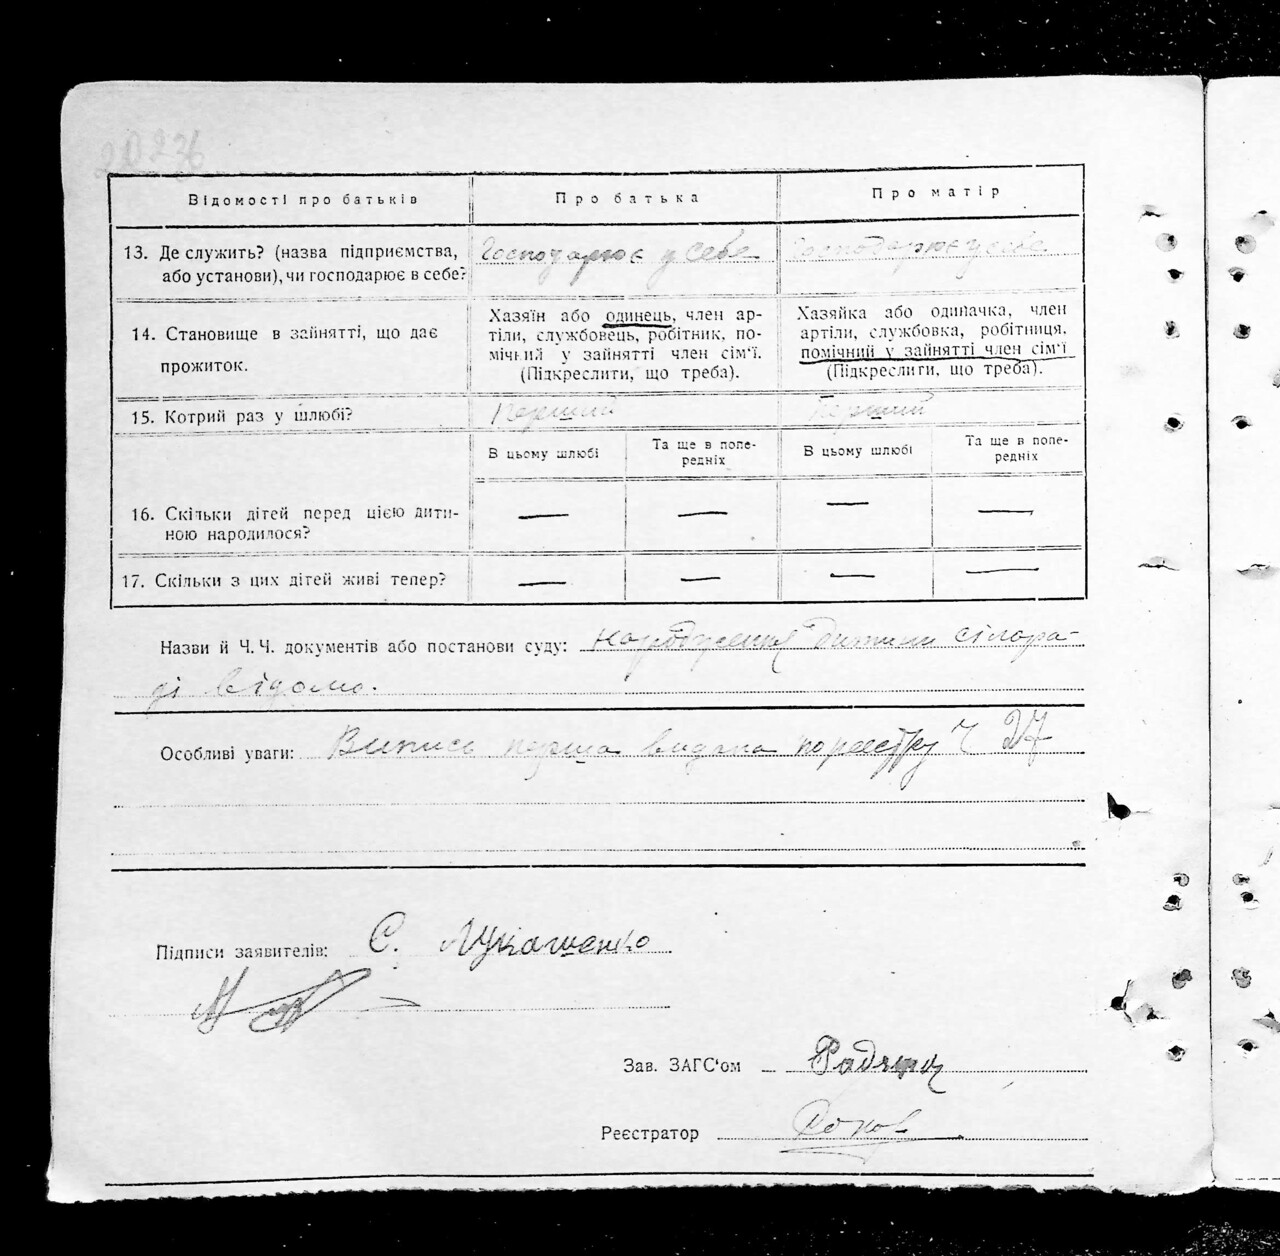 20236
Відомості про батьків
Про батька
Про матір
13. Де служить? (назва підприємства,
або установи), чи господарює в себе?
Господарює у себе
Господарює у себе
14. Становище в зайнятті, що дає
прожиток.
Хазяїн або одинець, член ар-
тіли, службовець, робітник, по-
мічний у зайнятті член сім'ї.
(Підкреслити, що треба).
Хазяйка або одиначка, член
артіли, службовка, робітниця,
помічний у зайнятті член сім'ї
(Підкреслити, що треба).
15. Котрий раз у шлюбі?
Перший
Перший
В цьому шлюбі
Та ще в попе-
редніх
В цьому шлюбі
Та ще в попе-
редніх
16. Скільки дітей перед цією дити-
ною народилося?
— — — —
17. Скільки з цих дітей живі тепер?
— — — —
Назви й Ч.Ч. документів або постанови суду: народження дитини сілора-
ді відомо.
Особливі уваги: Випись перша видана по реєстру Ч 27
Підписи заявителів: С. Лукашенко
Зав. ЗАГС'ом
Реєстратор